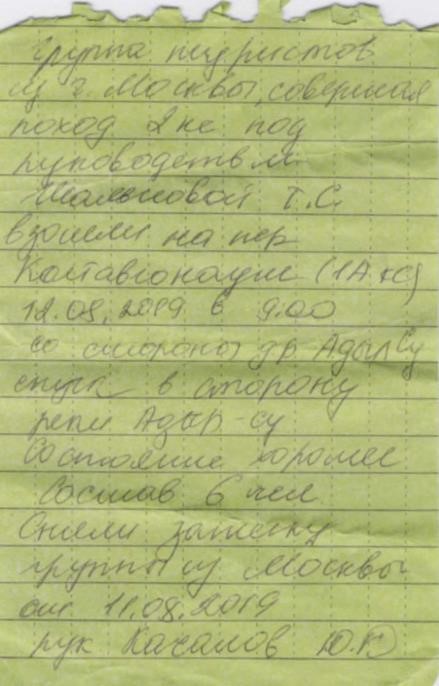 Группа туристов
из г. Москвы, совершая
поход 2 кс под
руководством
Т.С.
взошли на пер
(1А кс)
12.08.2019 в 9:00
со стороны др Адыл Су
спуск в сторону
реки Адыр-су
Состояние хорошее
Состав 6 чел
Сняли записку
группы из Москвы
от 11.08.2019
рук Качалов Ю.Ю